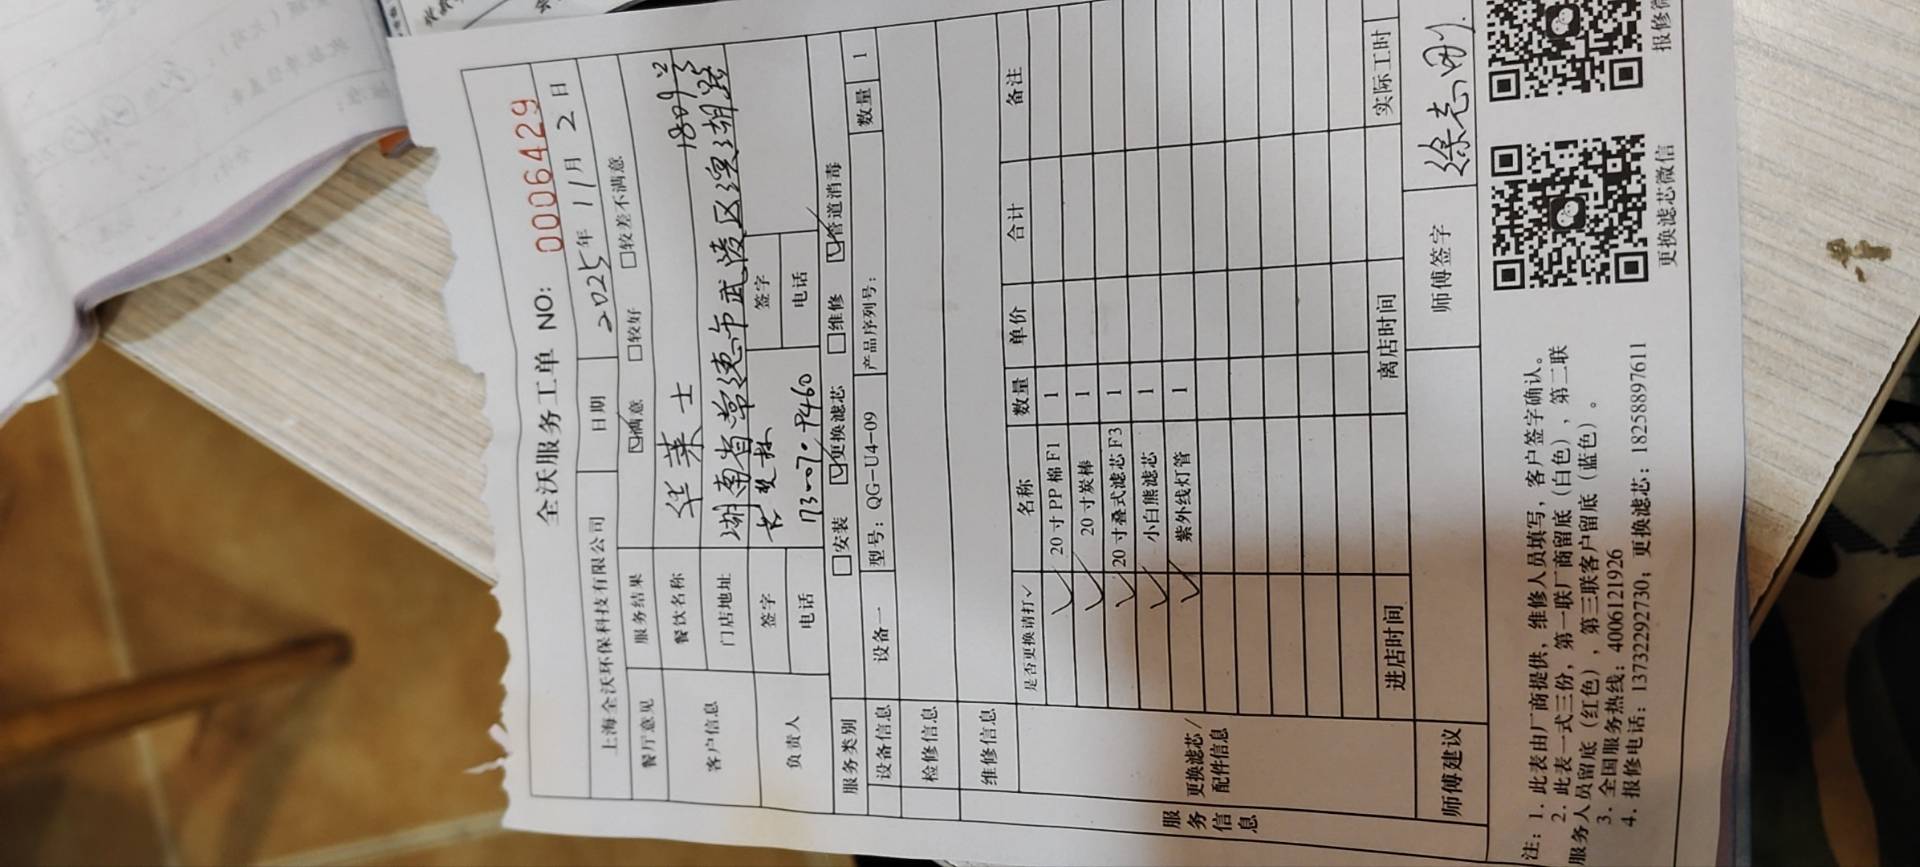 全沃服务工单 NO: 0006429
上海全沃环保科技有限公司 日期 2025年11月2日
餐厅意见 服务结果 ☑满意 □较好 □较差不满意
客户信息 餐饮名称 华莱士
门店地址 湖南省常德市武陵区滨湖路
负责人 签字 签字
电话 电话
服务类别 □安装 ☑更换滤芯 □维修 ☑管道消毒
设备信息 设备一 型号：QG-U4-09 产品序列号： 数量 1
检修信息
维修信息
服务信息
更换滤芯/配件信息
是否更换请打✓ 名称 数量 单价 合计 备注
✓ 20寸PP棉F1 1
✓ 20寸炭棒 1
✓ 20寸叠式滤芯F3 1
✓ 小白熊滤芯 1
✓ 紫外线灯管 1
进店时间 离店时间 实际工时
师傅建议 师傅签字 徐志刚
注：1. 此表由厂商提供，维修人员填写，客户签字确认。
2. 此表一式三份，第一联厂商留底（白色），第二联
服务人员留底（红色），第三联客户留底（蓝色）。
3. 全国服务热线：4006121926
4. 报修电话：13732292730；更换滤芯：18258897611
更换滤芯微信
报修微